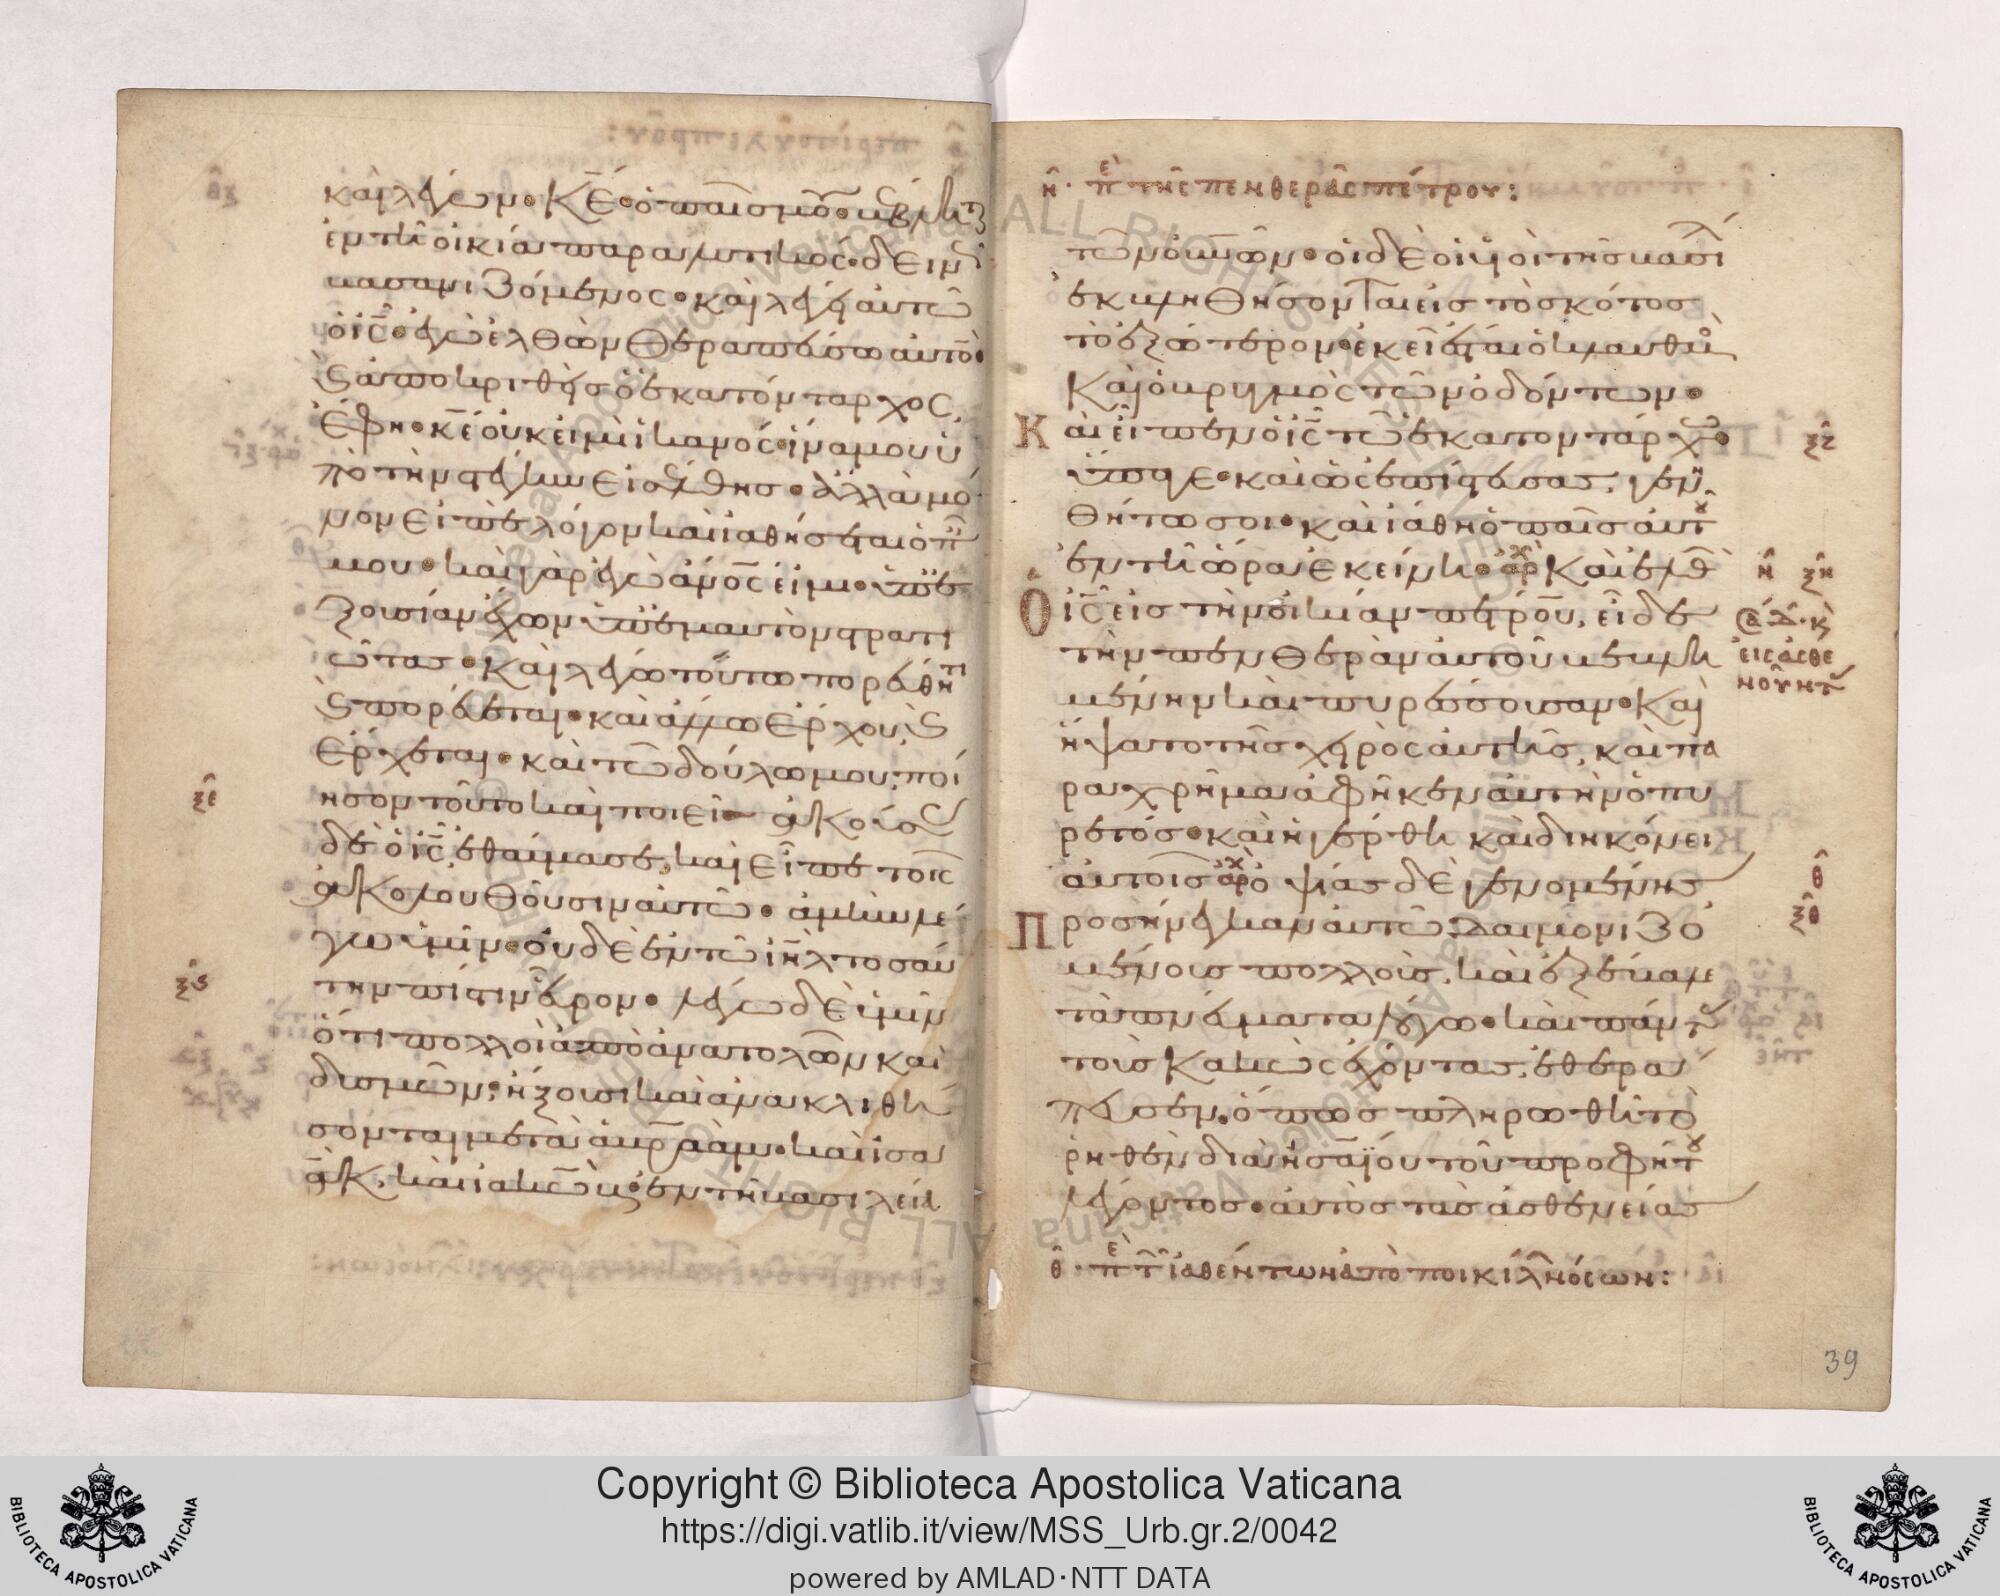 καὶ λέγων· κ̅ε̅ ὁ παῖς μου βέβλητ
ἐν τῆ οἰκία παραλυτικός· δεινῶ
βασανιζόμενος· καὶ λέγει αὐτῶ
ὁ ι̅ς̅· ἐγὼ ἐλθὼν θεραπεύσω αὐτόν·
καὶ ἀποκριθεὶς ὁ ἑκατόνταρχος,
ἔφη· κ̅ε̅ οὐκ εἰμὶ ἱκανός· ἵνα μου ὑ
πὸ τὴν στέγην εἰσέλθης· ἀλλὰ μό
νον εἰπὲ λόγον καὶ ἰαθήσεται ὁ π
μου· καὶ γὰρ ἐγὼ α̅ν̅ο̅ς̅ εἰμι· ὑπὸ ἐ
ξουσίαν ἔχων ὑπ' ἐμαυτὸν στρατι
ώτας· καὶ λέγω τούτω πορεύθητι
καὶ πορεύεται· καὶ ἄλλω ἔρχου, καὶ
ἔρχεται· καὶ τῶ δούλω μου, ποί
ησον τοῦτο καὶ ποιεῖ· ἀκούσας
ξε
δὲ ὁ ι̅ς̅, ἐθαύμασε, καὶ εἶπε τοῖς
ἀκολουθοῦσιν αὐτῶ· ἀμὴν λέ
γω ὑμῖν· οὐδὲ ἐν τῶ ι̅η̅λ̅ τοσαύ
την πίστιν εὗρον· λέγω δὲ ὑμῖν
ξς
ὅτι πολλοὶ ἀπὸ ἀνατολῶν καὶ
δυσμῶν, ἥξουσι καὶ ἀνακλιθή
σονται μετὰ ἀβραὰμ· καὶ ἰσα
ὰκ, καὶ ἰακὼβ· ἐν τῆ βασιλεία
η· πε τῆς πενθερᾶς πέτρου:
τῶν ο̅υ̅ν̅ω̅ν̅· οἱ δὲ οἱ υἱοὶ τῆς βασιλ
ἐκβληθήσονται εἰς τὸ σκότος
τὸ ἐξώτερον· ἐκεῖ ἔσται ὁ κλαυθμὸ
καὶ ὁ βρυγμὸς τῶν ὀδόντων·
Καὶ εἶπεν ὁ ι̅ς̅ τῶ ἑκατοντάρχω· ξζ
ὕπαγε· καὶ ὡς ἐπίστευσας, γενη
θήτω σοι· καὶ ἰάθη ὁ παῖς αὐτοῦ
ἐν τῆ ὥρα ἐκείνη· ἀρχ Καὶ ἐλθ η ξη
Ὁ ι̅ς̅ εἰς τὴν οἰκίαν πέτρου, εἶδε
τὴν πενθερὰν αὐτοῦ βεβλη
εἰς ἀσθε
νοῦντ
μένην καὶ πυρέσσουσαν· καὶ
ἥψατο τῆς χειρὸς αὐτῆς, καὶ πα
ραχρῆμα ἀφῆκεν αὐτὴν ὁ πυ
ρετός· καὶ ἠγέρθη καὶ διηκόνει
αὐτοῖς ἀρχ ὀψίας δὲ γενομένης θ
Προσήνεγκαν αὐτῶ δαιμονιζο ξθ
μένους πολλοὺς, καὶ ἐξέβαλε
τὰ πνεύματα λόγω· καὶ πάντας
τοὺς κακῶς ἔχοντας, ἐθερά
πευσεν, ὅπως πληρωθῆ τὸ
ῥηθὲν διὰ ἡσαΐου τοῦ προφήτου
λέγοντος· αὐτὸς τὰς ἀσθενείας
θ· πε τ ἰαθέντων ἀπὸ ποικίλ νόσων:
39
Copyright © Biblioteca Apostolica Vaticana
https://digi.vatlib.it/view/MSS_Urb.gr.2/0042
powered by AMLAD·NTT DATA
BIBLIOTECA APOSTOLICA VATICANA
BIBLIOTECA APOSTOLICA VATICANA